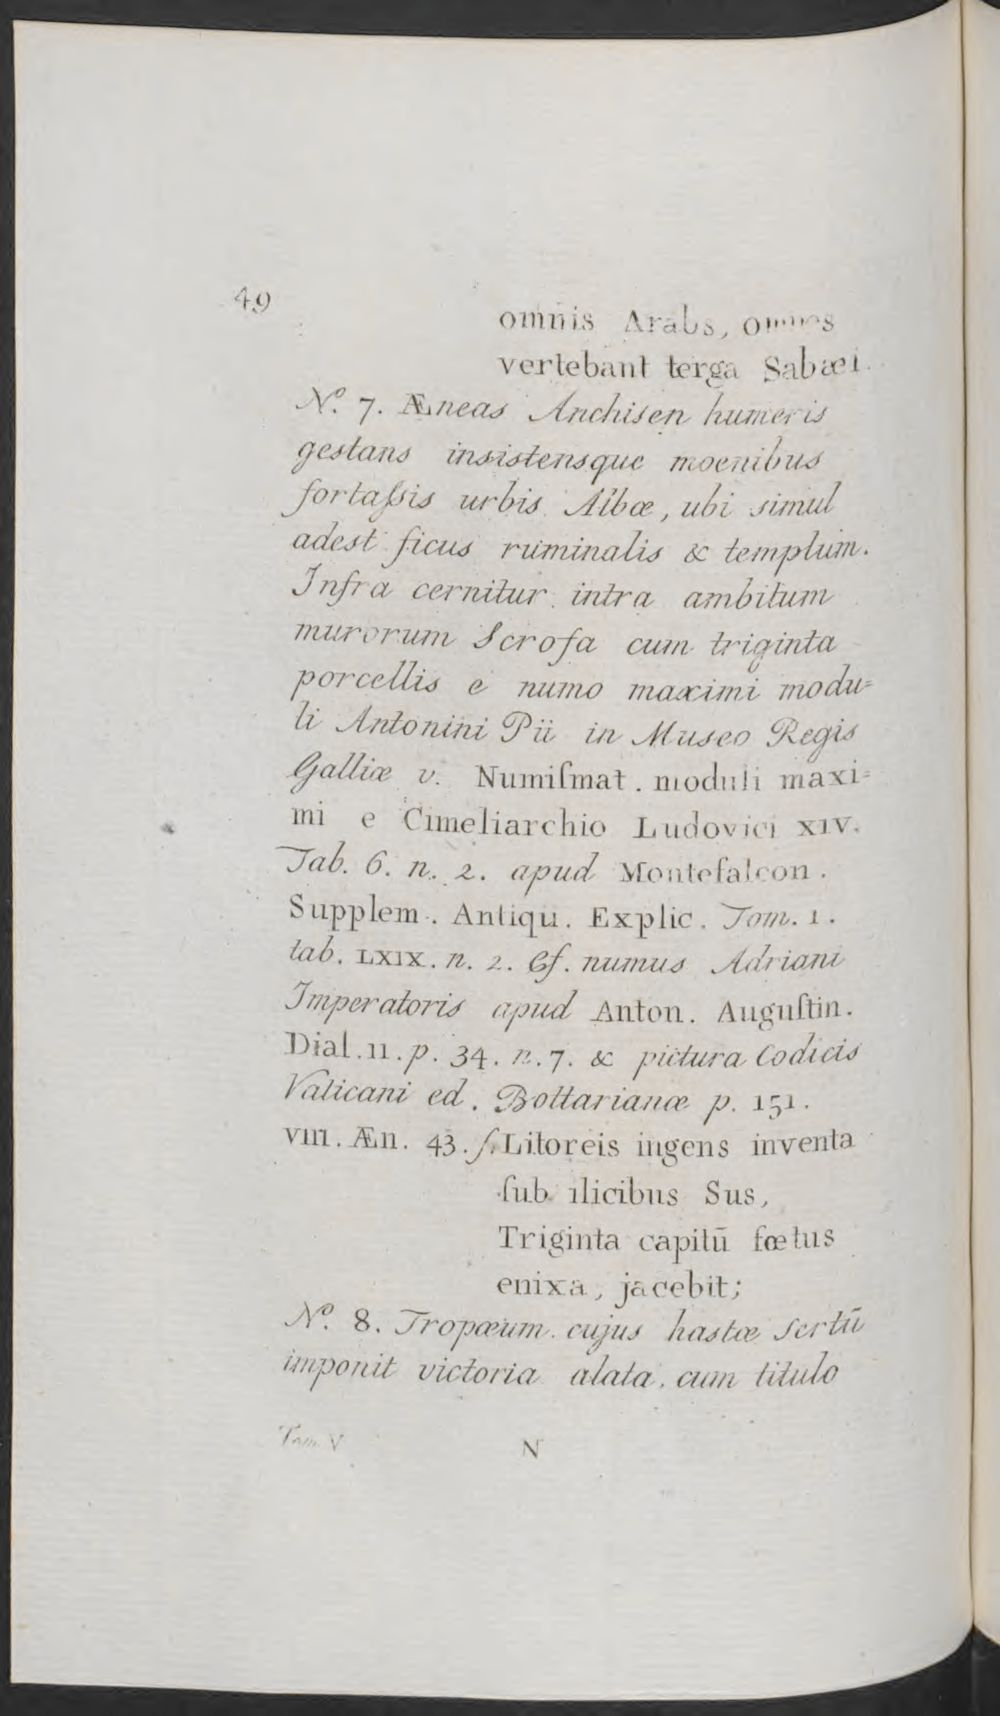 49
omnis Arabs, omnes
vertebant terga Sabæi.
N.º 7. Æneas Anchisen humeris
gestans insistensque moenibus
fortaſsis urbis Albæ, ubi simul
adest ficus ruminalis & templum.
Infra cernitur intra ambitum
murorum Scrofa cum triginta
porcellis e numo maximi modu=
li Antonini Pii in Museo Regis
Galliæ v. Numiſmat. moduli maxi=
mi e Cimeliarchio Ludovici XIV.
Tab. 6. n. 2. apud Montefalcon.
Supplem. Antiqu. Explic. Tom. 1.
tab. LXIX. n. 2. Cf. numus Adriani
Imperatoris apud Anton. Auguſtin.
Dial. 11. p. 34. n. 7. & pictura Codicis
Vaticani ed. Bottarianæ p. 151.
VIII. Æn. 43. ſ. Litoreis ingens inventa
ſub ilicibus Sus,
Triginta capitū fœtus
enixa, jacebit;
N.º 8. Tropæum cujus hastæ Sertū
imponit victoria alata, cum titulo
Tom. V
N